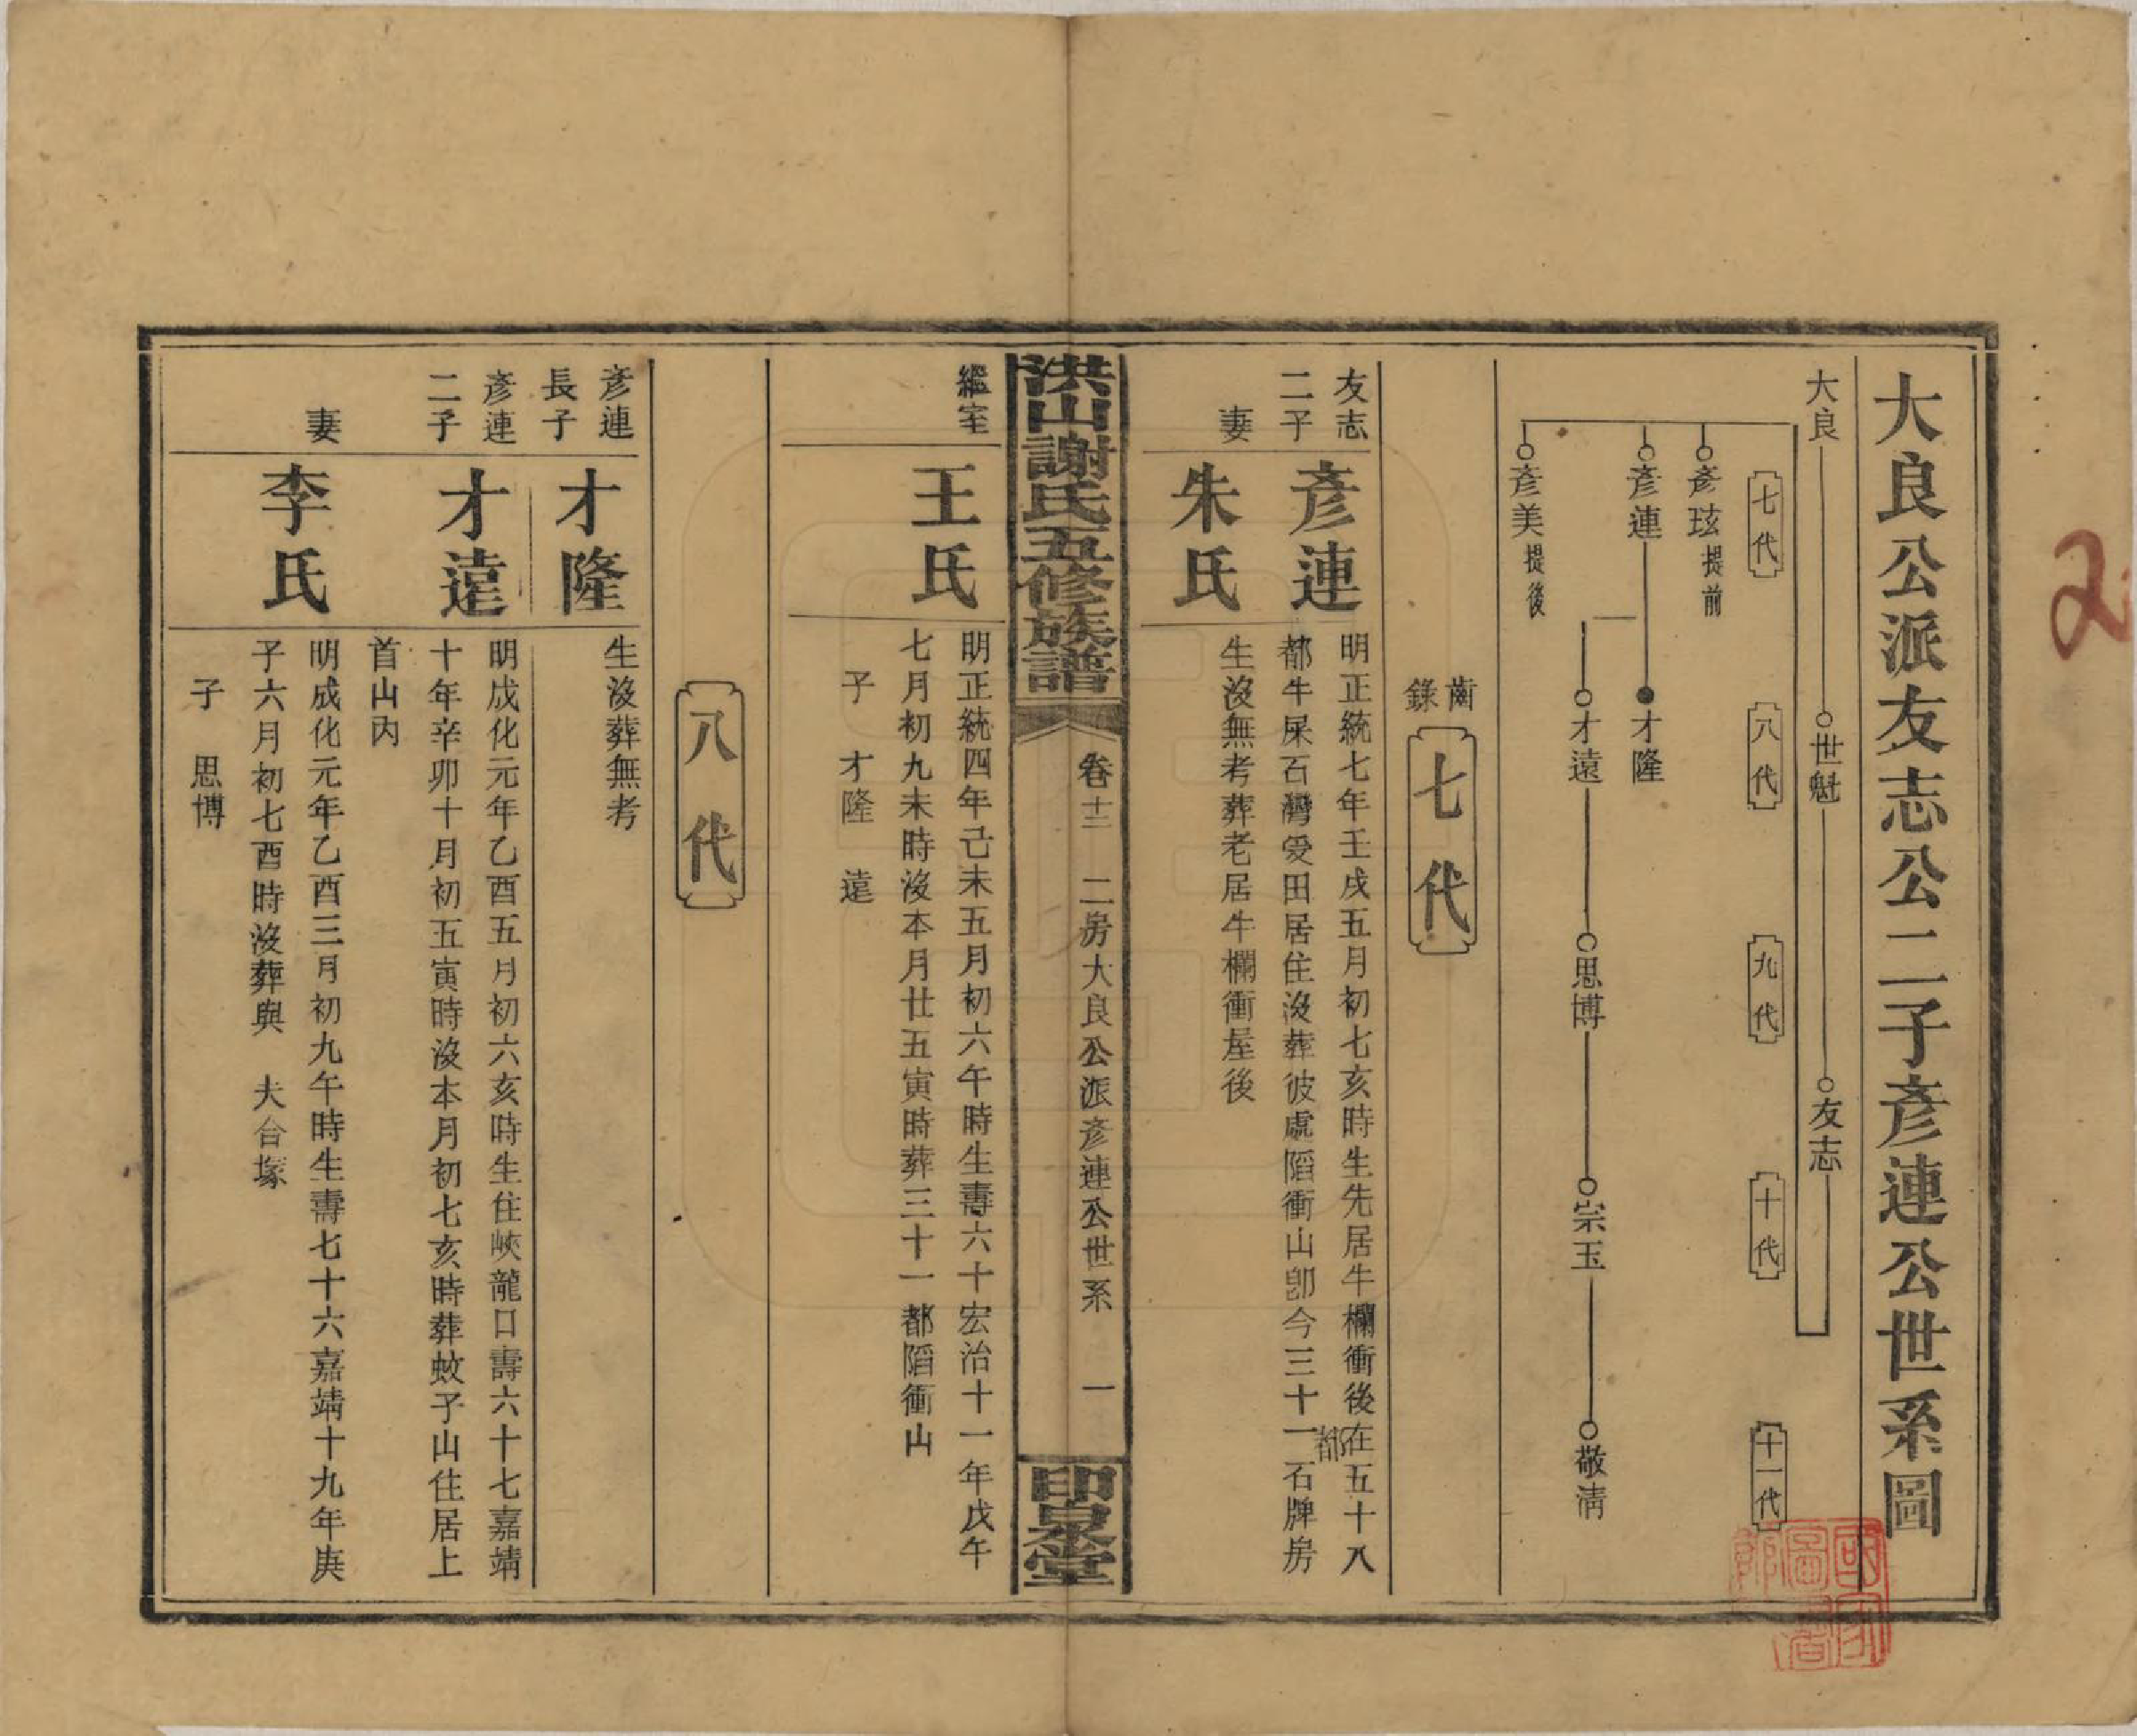 大良公派友志公二子彥連公世系圖
大良
世魁
友志
七代
八代
九代
十代
十一代
彥玹提前
彥連
才隆
才遠
思博
宗玉
敬淸
彥美提後
齒錄
七代
友志二子
彥連
明正統七年壬戌五月初七亥時生先居牛欄衝後在五十八
都牛屎石灣爰田居住沒葬彼處陷衝山卽今三十一都石牌房
妻
朱氏
生沒無考葬老居牛欄衝屋後
洪山謝氏五修族譜
卷十三
二房大良公派彥連公世系
一
印泉堂
繼室
王氏
明正統四年己未五月初六午時生壽六十宏治十一年戊午
七月初九未時沒本月廿五寅時葬三十一都陷衝山
子 才隆 遠
八代
彥連長子
才隆
生沒葬無考
彥連二子
才遠
明成化元年乙酉五月初六亥時生住峽龍口壽六十七嘉靖
十年辛卯十月初五寅時沒本月初七亥時葬蚊子山住居上
首山內
妻
李氏
明成化元年乙酉三月初九午時生壽七十六嘉靖十九年庚
子六月初七酉時沒葬與 夫合塚
子 思博
國家圖書
2